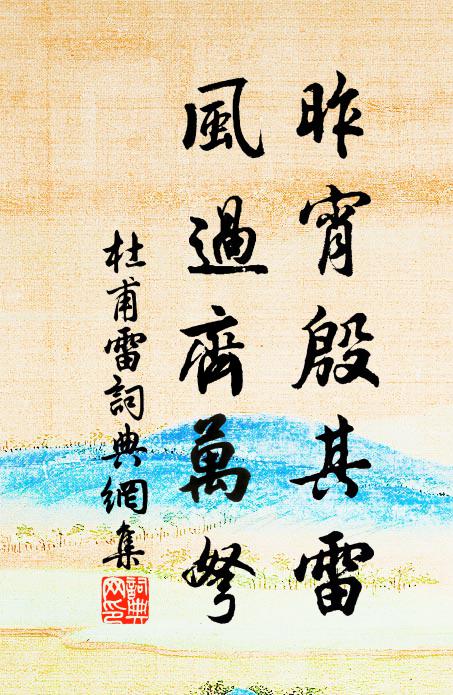 昨宵殷其雷
風過齊萬弩
杜甫雷詞典網集